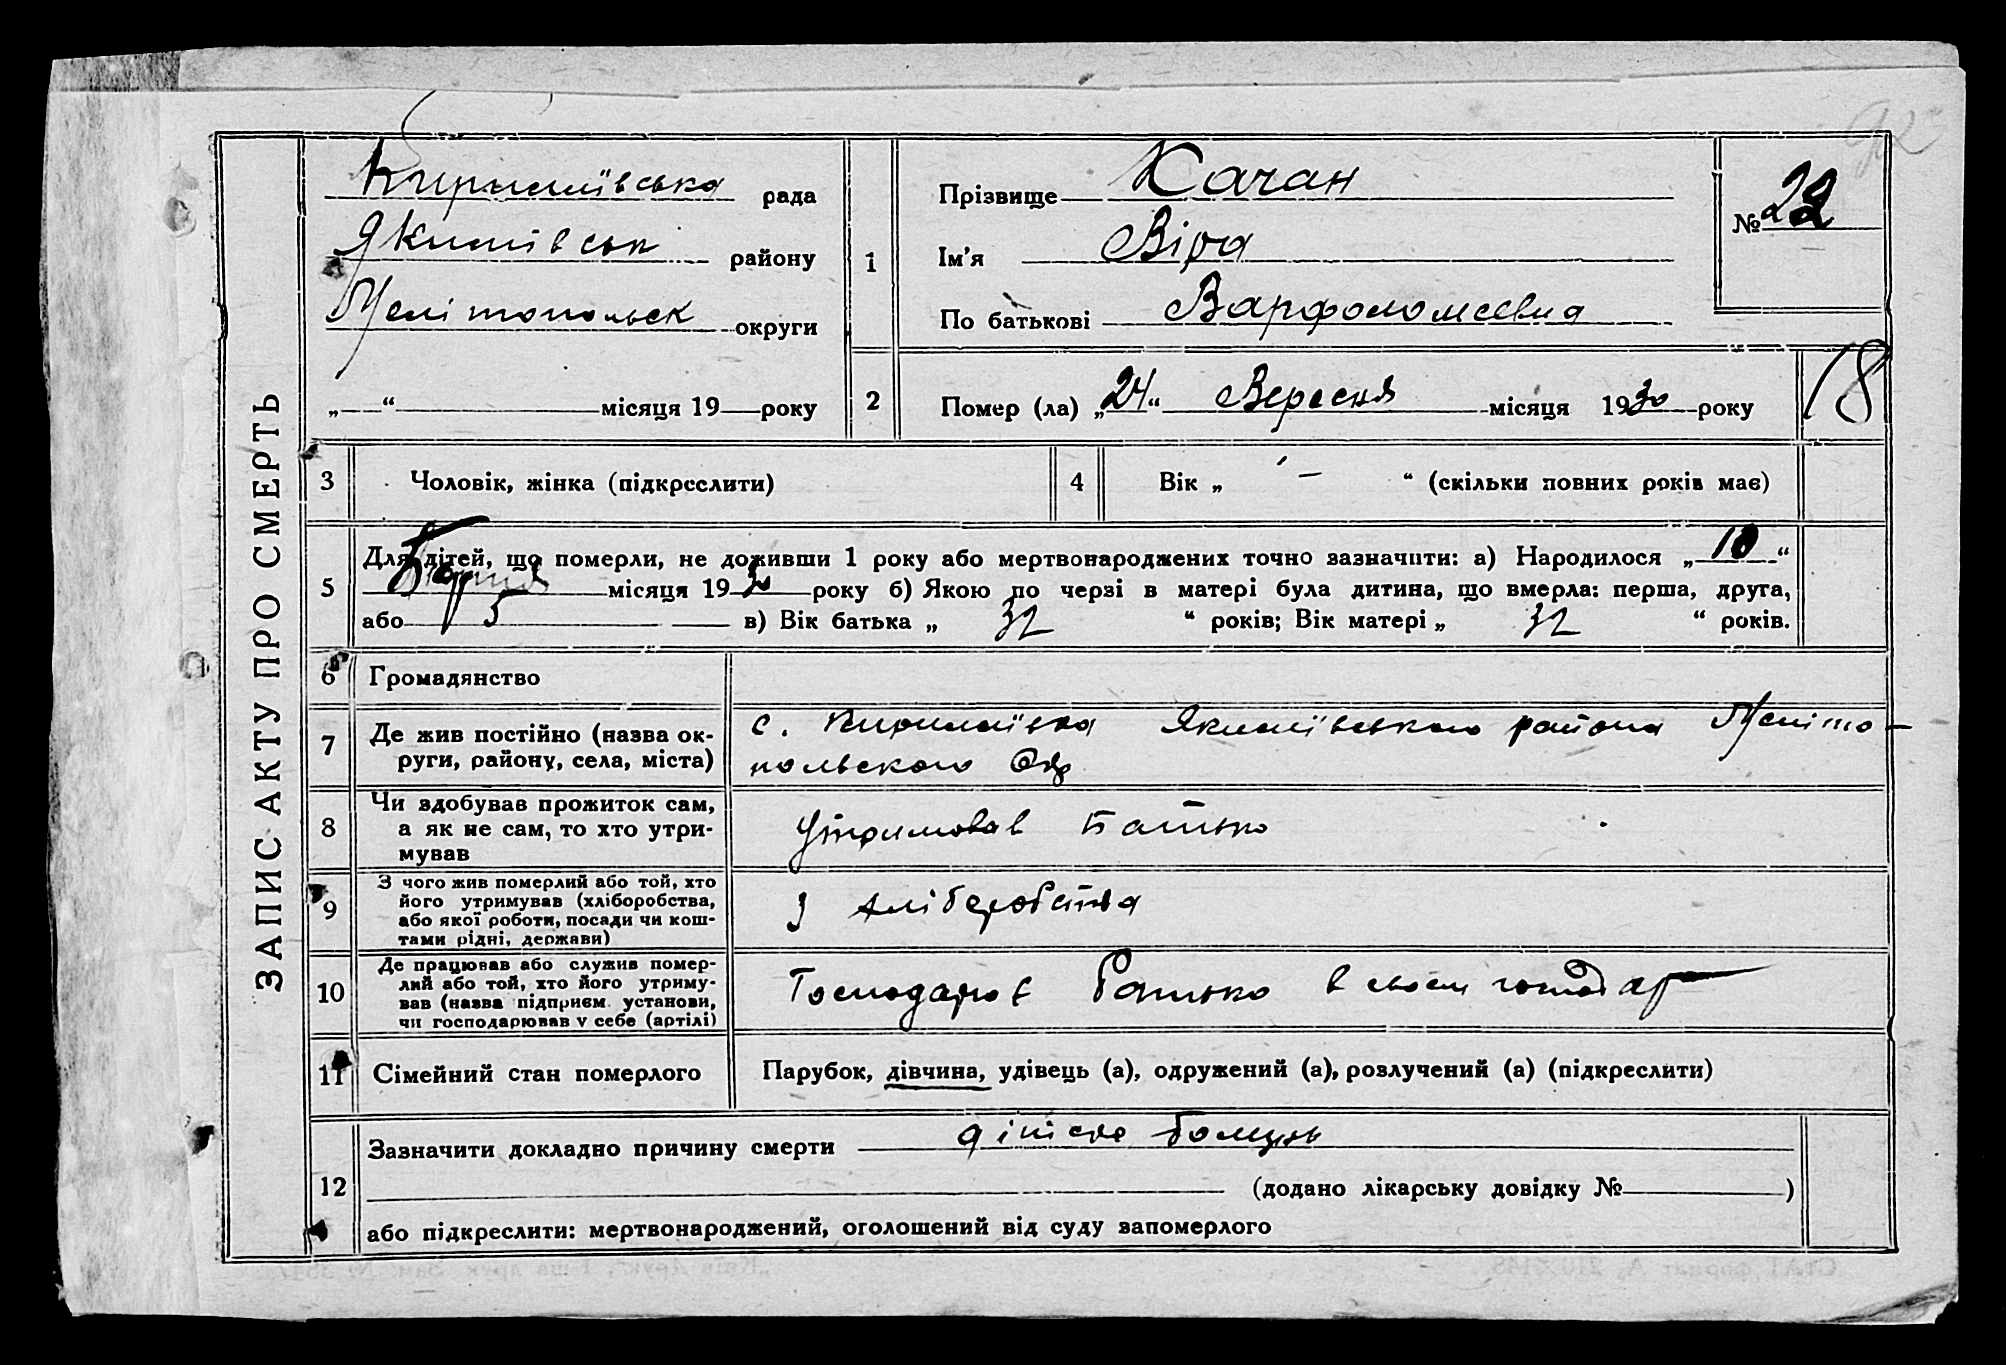 ЗАПИС АКТУ ПРО СМЕРТЬ
Кирилівська рада
Якимівськ району
Мелітопольск округи
„—“ місяця 19—року
1
Прізвище Качан
Ім’я Віра
По батькові Варфоломеевна
№ 22
2
Помер (ла) „24“ Вересня місяця 1930 року
18
3
Чоловік, жінка (підкреслити)
4
Вік „ – “ (скільки повних років має)
5
Для дітей, що померли, не доживши 1 року або мертвонароджених точно зазначити: а) Народилося „10“
місяця 1930 року б) Якою по черзі в матері була дитина, що вмерла: перша, друга,
або 5 в) Вік батька „ 32 “ років; Вік матері „ 32 “ років.
6
Громадянство
7
Де жив постійно (назва ок-
руги, району, села, міста)
с. Кирилівка Якимівського району Меліто-
польского Окр
8
Чи здобував прожиток сам,
а як не сам, то хто утри-
мував
Утримовав Батько
9
З чого жив померлий або той, хто
його утримував (хліборобства,
або якої роботи, посади чи кош-
тами рідні, держави)
З хліборобства
10
Де працював або служив помер-
лий або той, хто його утриму-
вав (назва підприєм. установи,
чи господарював у себе (артілі)
Господарював батько в своем господар
11
Сімейний стан померлого
Парубок, дівчина, удівець (а), одружений (а), розлучений (а) (підкреслити)
12
Зазначити докладно причину смерти
(додано лікарську довідку № )
або підкреслити: мертвонароджений, оголошений від суду запомерлого